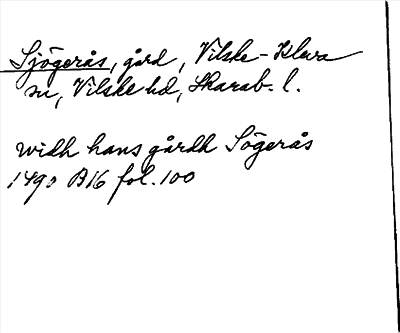 Sjögerås, gård, Vilske-Kleva
sn, Vilske hd, Skarab. l.
widh hans gårdh Sögerås
1490 A16 fol. 100